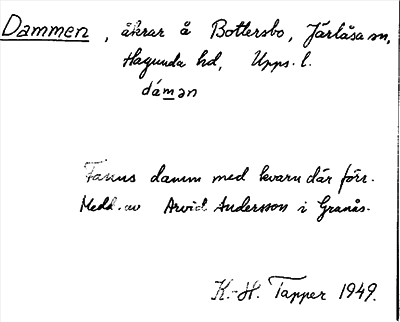 Dammen, åkrar å Bottersbo, Järlåsa sn,
Hagunda hd, Upps. l.
dámən
Fanns damm med kvarn där förr.
Medd. av Arvid Andersson i Granås.
K.-H. Tapper 1949.